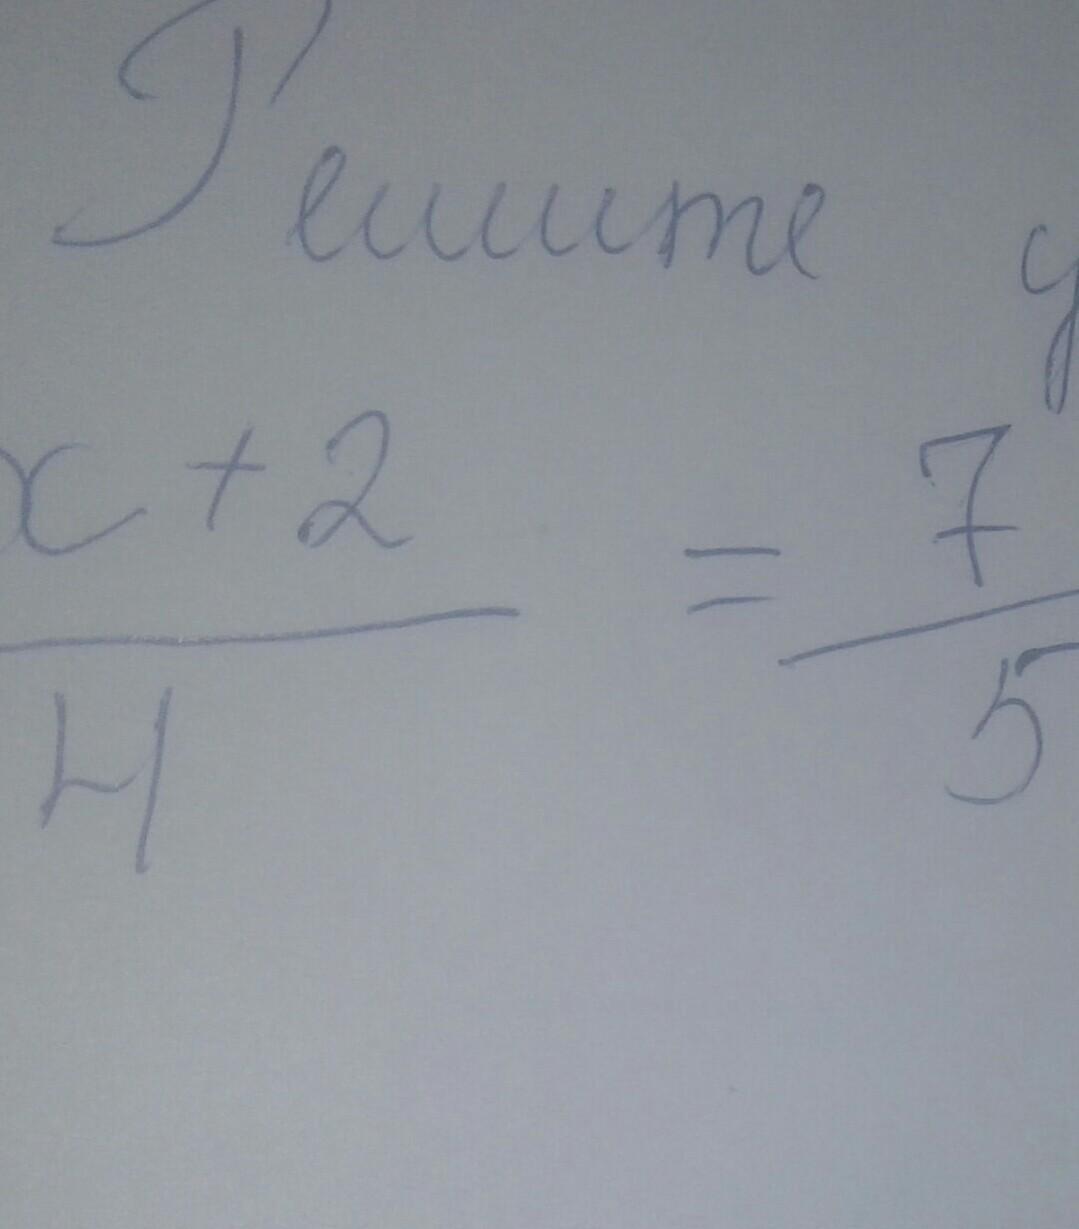 Решите у
x + 2 = 7
4 5